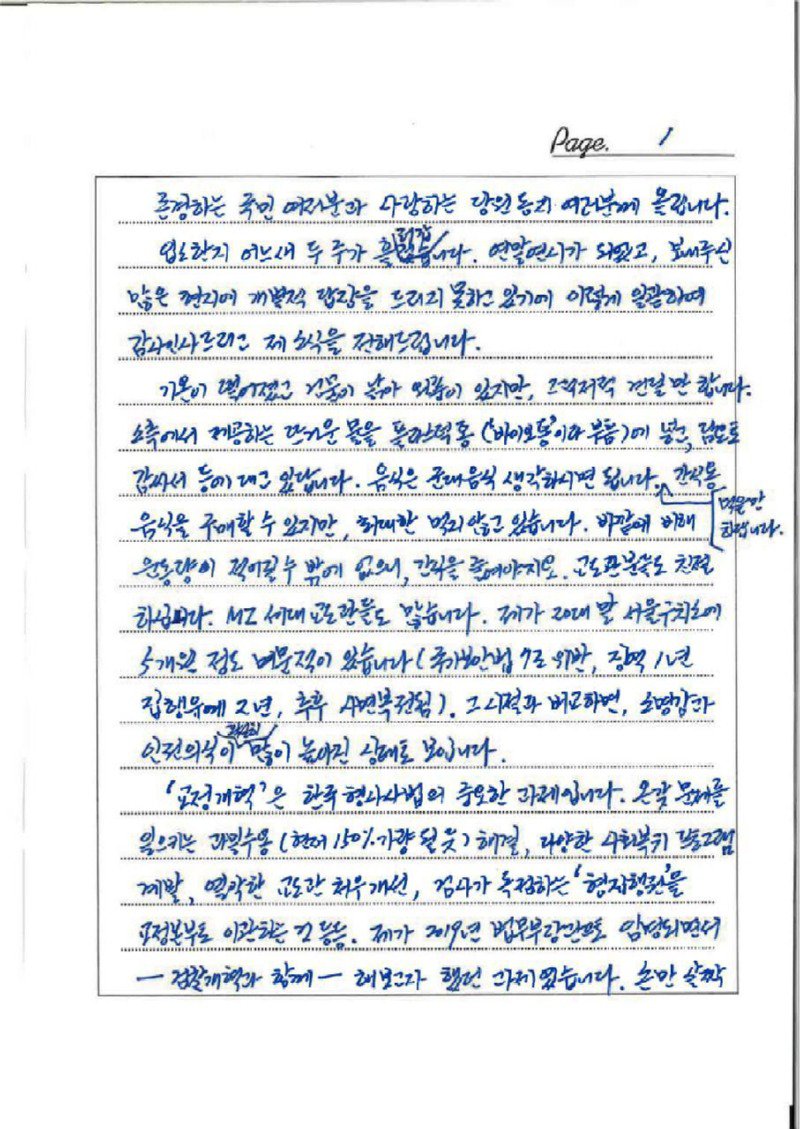 Page. 1
존경하는 국민 여러분과 사랑하는 당원 동지 여러분께 올립니다.
입소한지 어느새 두 주가 흘렀습니다. 연말연시가 되었고, 보내주신
많은 편지에 개별적 답장을 드리지 못하고 있기에 이렇게 일괄하여
감사인사드리고 제 소식을 전해드립니다.
기온이 떨어졌고 건물이 낡아 외풍이 있지만, 그럭저럭 견딜 만 합니다.
소측에서 제공하는 뜨거운 물을 플라스틱 통('바이오통'이라 부름)에 넣고, 담요로
감싸서 등에 대고 있답니다. 음식은 군대음식 생각하시면 됩니다. 간식용
먹을만
하답니다.
음식을 구매할 수 있지만, 최대한 먹지 않고 있습니다. 바깥에 비해
운동량이 적어질 수 밖에 없으니, 간식을 줄여야지요. 교도관분들도 친절
하십니다. MZ 세대 교도관들도 많습니다. 제가 20대 말 서울구치소에
5개월 정도 머문적이 있습니다(국가보안법 7조 위반, 징역 1년
집행유예 2년, 추후 사면복권됨). 그 시절과 비교하면, 소명감과
인권의식이 많이 높아진 상태로 보입니다.
'교정개혁'은 한국 형사사법의 중요한 과제입니다. 온갖 문제를
일으키는 과밀수용(현재 150% 가량 될 듯) 해결, 다양한 사회복귀 프로그램
계발, 열악한 교도관 처우개선, 검사가 독점하는 '형집행권'을
교정본부로 이관하는 것 등등. 제가 2019년 법무부장관으로 임명되면서
— 검찰개혁과 함께 — 해보고자 했던 과제였습니다. 손만 살짝